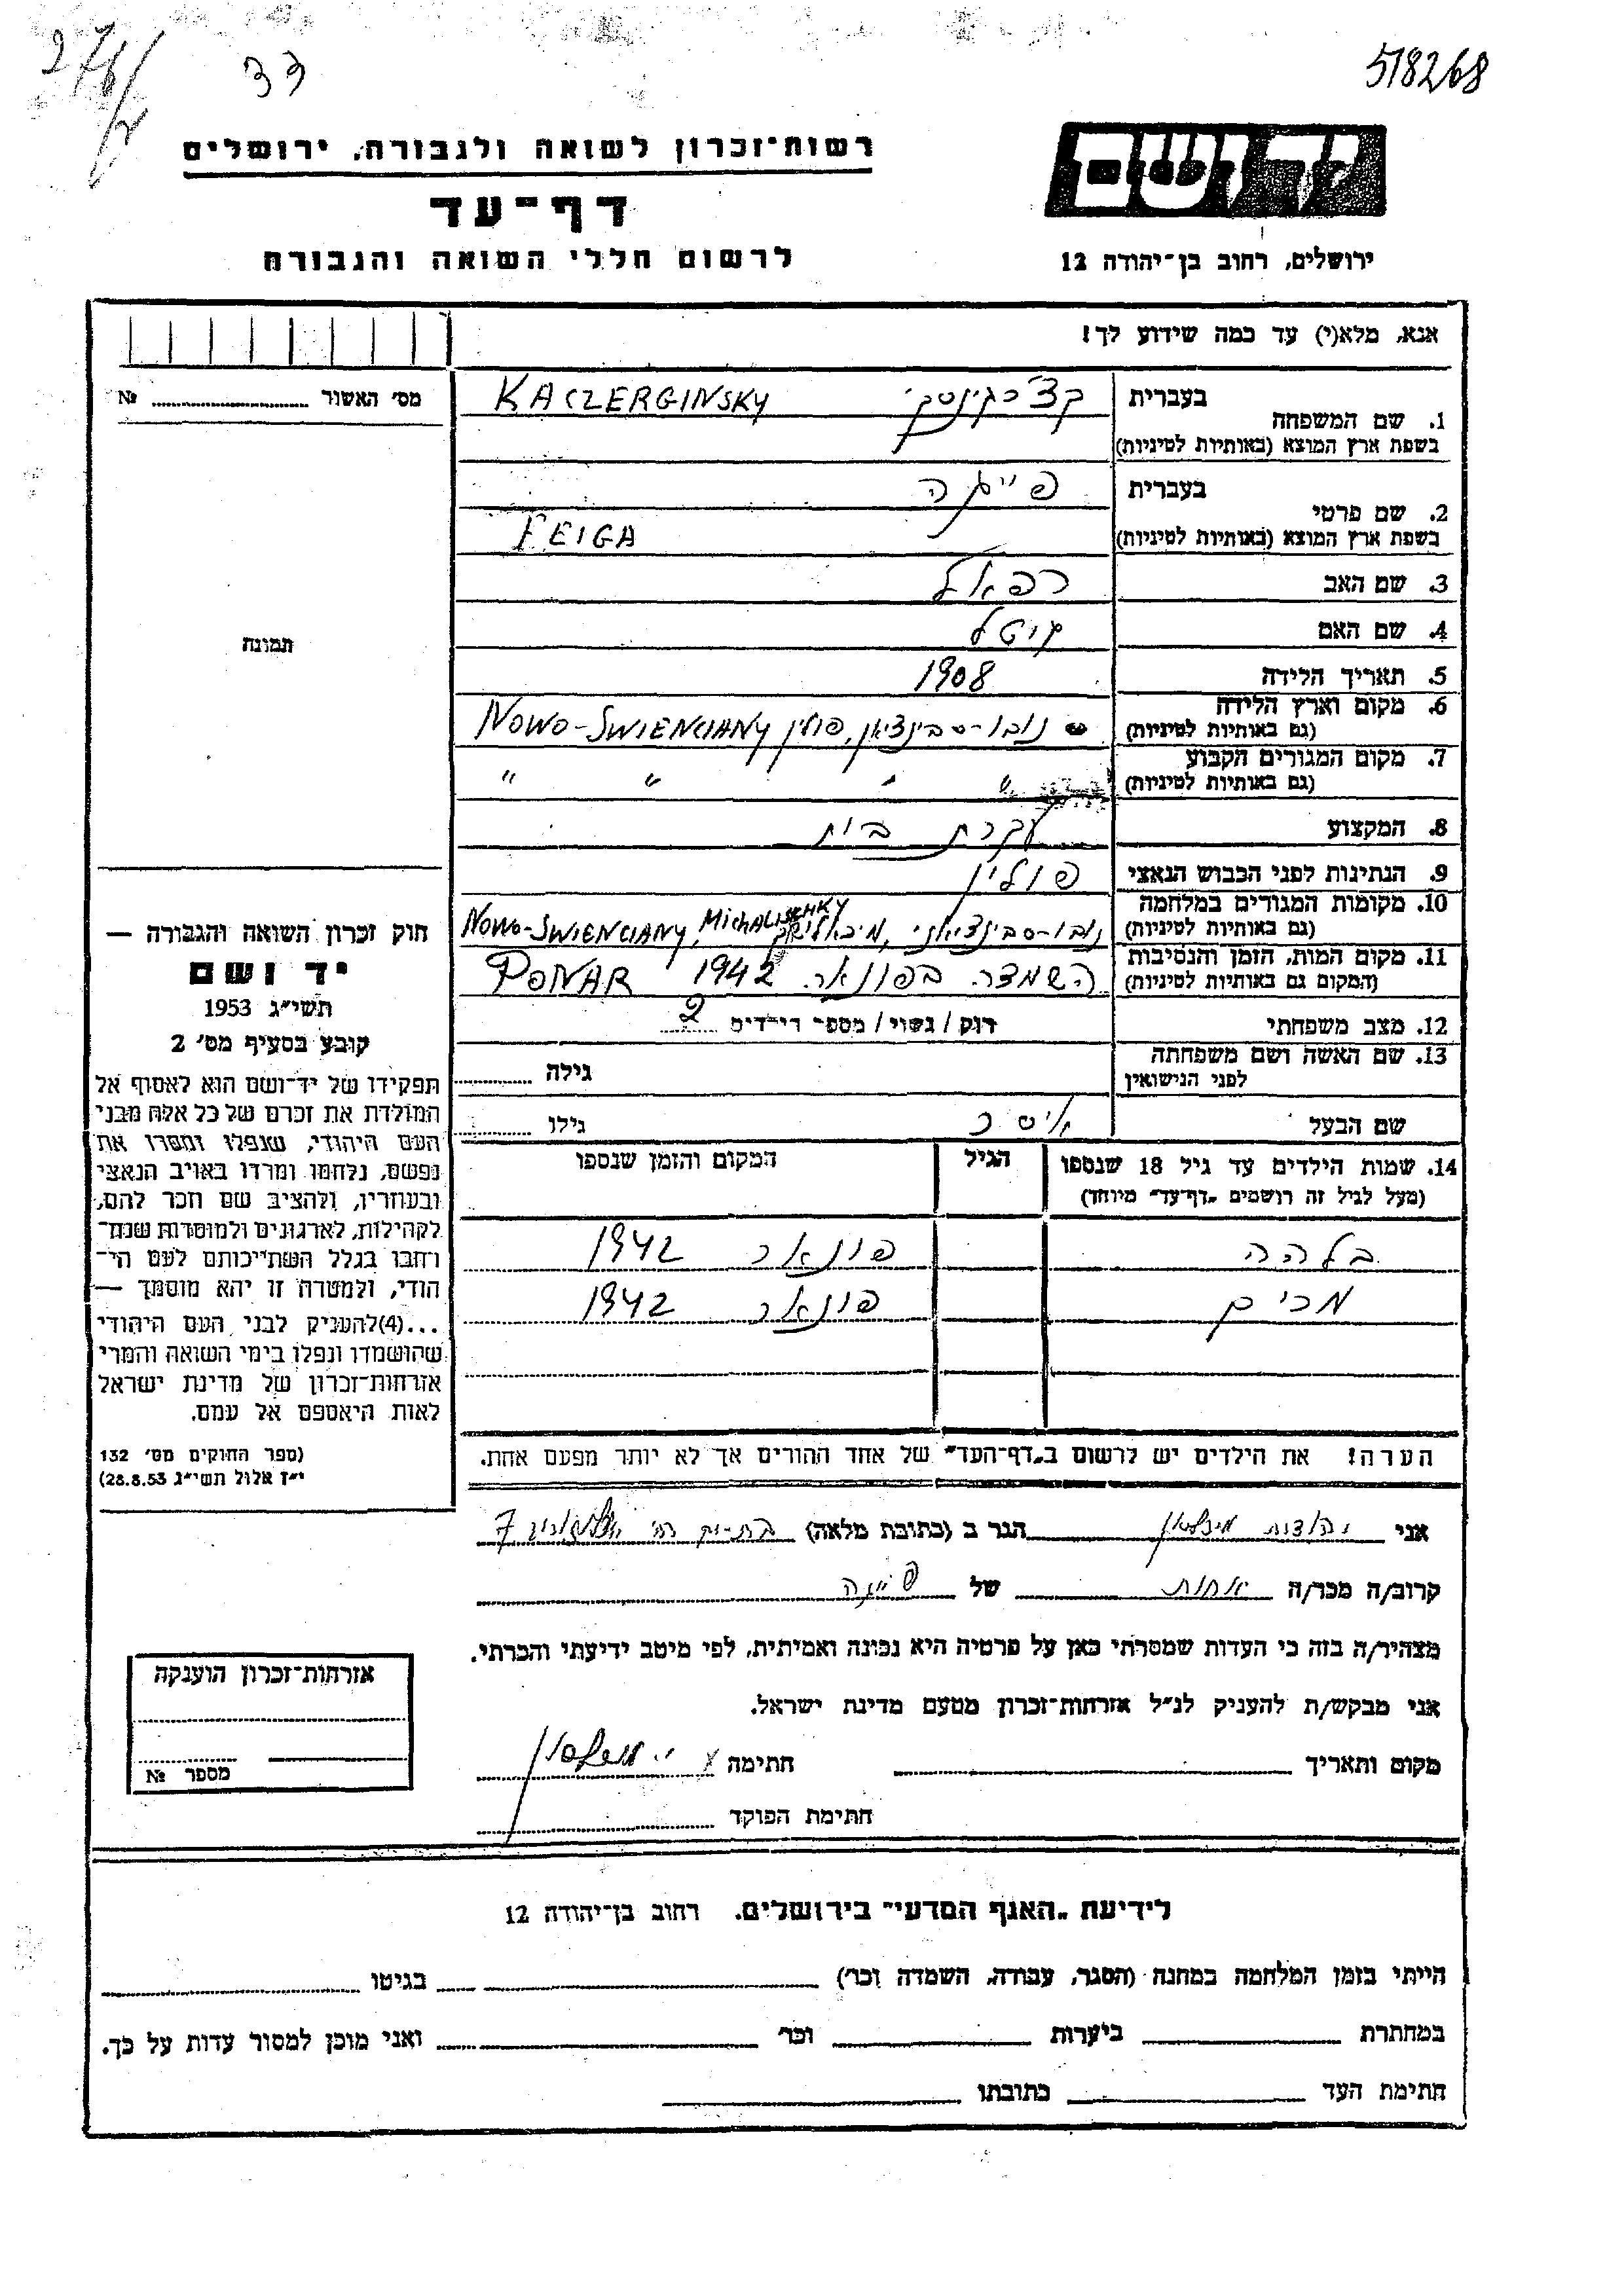 518268
רשות־זכרון לשואה ולגבורה, ירושלים
דף־עד
לרשום חללי השואה והגבורה
יד ושם
ירושלים, רחוב בן־יהודה 12
אנא, מלא(י) עד כמה שידוע לך!
מס׳ האשור № 
תמונה
1. שם המשפחה בעברית קצ׳רגינסקי KACZERGINSKY
בשפת ארץ המוצא (באותיות לטיניות)
2. שם פרטי בעברית פייגה
בשפת ארץ המוצא (באותיות לטיניות) FEIGA
3. שם האב רפאל
4. שם האם
5. תאריך הלידה 1908
6. מקום וארץ הלידה נובו-סבינציאן, פולין NOWO-SWIENCIANY
(גם באותיות לטיניות)
7. מקום המגורים הקבוע " " " "
(גם באותיות לטיניות)
8. המקצוע עקרת בית
9. הנתינות לפני הכבוש הנאצי פולין
10. מקומות המגורים במלחמה נובו-סבינציאני, מיכאלישק NOWO-SWIENCIANY, MICHALISHKY
(גם באותיות לטיניות)
11. מקום המות, הזמן והנסיבות הושמצה בפונאר. 1942 PONAR
(המקום גם באותיות לטיניות)
12. מצב משפחתי רוק / נשוי / מספר הילדים 2
13. שם האשה ושם משפחתה גילה
לפני הנישואין
שם הבעל גילו
14. שמות הילדים עד גיל 18 שנספו הגיל המקום והזמן שנספו
(מעל לגיל זה רושמים „דף־עד״ מיוחד)
בלהה פונאר 1942
מרים פונאר 1942
הערה! את הילדים יש לרשום ב„דף־העד״ של אחד ההורים אך לא יותר מפעם אחת.
חוק זכרון השואה והגבורה —
יד ושם
תשי״ג 1953
קובע בסעיף מס׳ 2
תפקידו של יד־ושם הוא לאסוף אל
המולדת את זכרם של כל אלה מבני
העם היהודי, שנפלו ומסרו את
נפשם, נלחמו ומרדו באויב הנאצי
ובעוזריו, ולהציב שם וזכר להם,
לקהילות, לארגונים ולמוסדות שנח־
רחבו בגלל השתייכותם לעם הי־
הודי, ולמטרה זו יהא מוסמך —
...(4)להעניק לבני העם היהודי
שהושמדו ונפלו בימי השואה והמרי
אזרחות־זכרון של מדינת ישראל
לאות היאספם אל עמם.
(ספר החוקים מס׳ 132
י״ז אלול תשי״ג 28.8.53)
אני יהודית הגר ב (כתובת מלאה) בת-ים 7
קרוב/ה מכר/ה אחות של פייגה
מצהיר/ה בזה כי העדות שמסרתי כאן על פרטיה היא נכונה ואמיתית, לפי מיטב ידיעתי והכרתי.
אני מבקש/ת להעניק לנ״ל אזרחות־זכרון מטעם מדינת ישראל.
מקום ותאריך חתימה
חתימת הפוקד
אזרחות־זכרון הוענקה
מספר №
לידיעת „האגף המדעי״ בירושלים. רחוב בן־יהודה 12
הייתי בזמן המלחמה במחנה (הסגר, עבודה, השמדה וכר׳) בגיטו
במחתרת ביערות וכר׳ ואני מוכן למסור עדות על כך.
חתימת העד כתובתו